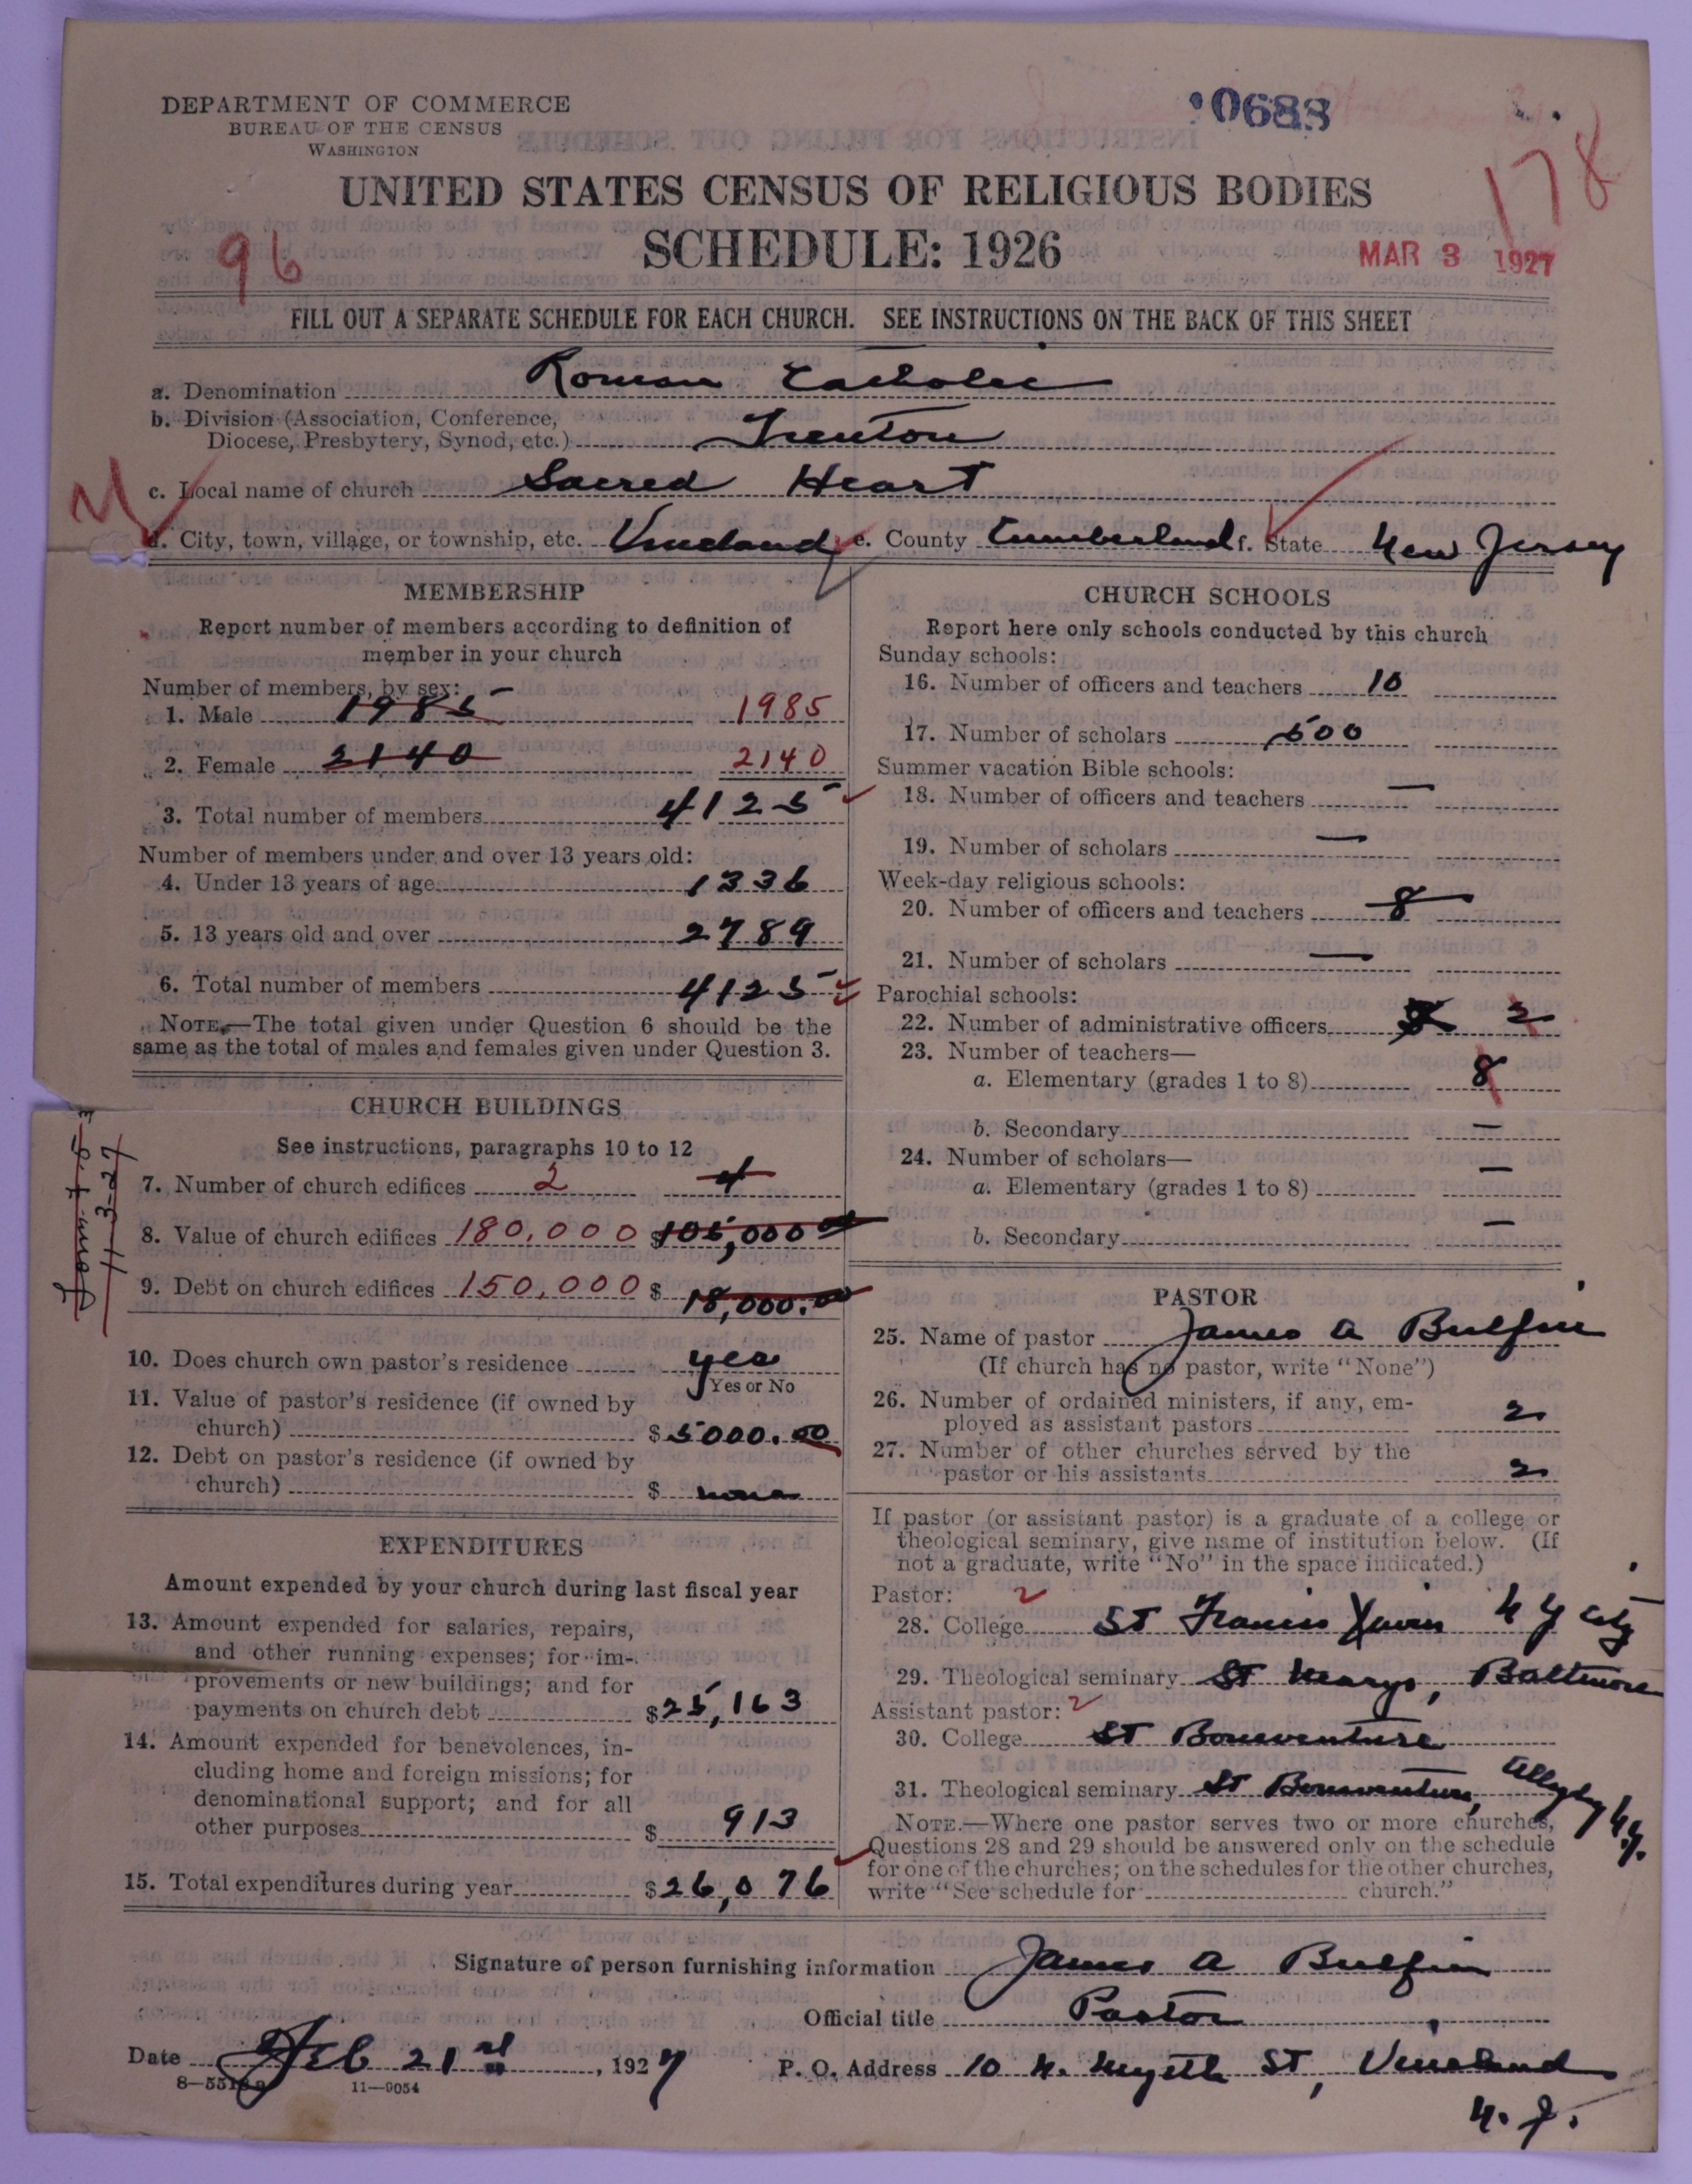 DEPARTMENT OF COMMERCE
BUREAU OF THE CENSUS
WASHINGTON
0688
178
UNITED STATES CENSUS OF RELIGIOUS BODIES
SCHEDULE: 1926
96
MAR 3 1927
FILL OUT A SEPARATE SCHEDULE FOR EACH CHURCH. SEE INSTRUCTIONS ON THE BACK OF THIS SHEET
a. Denomination Roman Catholic
b. Division (Association, Conference,
Diocese, Presbytery, Synod, etc.) Trenton
c. Local name of church Sacred Heart
d. City, town, village, or township, etc. Vineland e. County Cumberland f. State New Jersey
MEMBERSHIP
Report number of members according to definition of
member in your church
Number of members, by sex:
1. Male 1985 1985
2. Female 2140 2140
3. Total number of members 4125
Number of members under and over 13 years old:
4. Under 13 years of age 1336
5. 13 years old and over 2789
6. Total number of members 4125
NOTE.—The total given under Question 6 should be the
same as the total of males and females given under Question 3.
CHURCH BUILDINGS
See instructions, paragraphs 10 to 12
7. Number of church edifices 2 4
8. Value of church edifices 180,000 $105,000.00
9. Debt on church edifices 150,000 $18,000.00
10. Does church own pastor's residence yes
Yes or No
11. Value of pastor's residence (if owned by
church) $5000.00
12. Debt on pastor's residence (if owned by
church) $ none
EXPENDITURES
Amount expended by your church during last fiscal year
13. Amount expended for salaries, repairs,
and other running expenses; for im-
provements or new buildings; and for
payments on church debt $25,163
14. Amount expended for benevolences, in-
cluding home and foreign missions; for
denominational support; and for all
other purposes $ 913
15. Total expenditures during year $26,076
CHURCH SCHOOLS
Report here only schools conducted by this church
Sunday schools:
16. Number of officers and teachers 10
17. Number of scholars 500
Summer vacation Bible schools:
18. Number of officers and teachers —
19. Number of scholars —
Week-day religious schools:
20. Number of officers and teachers 8
21. Number of scholars —
Parochial schools:
22. Number of administrative officers 2
23. Number of teachers—
a. Elementary (grades 1 to 8) 8
b. Secondary —
24. Number of scholars—
a. Elementary (grades 1 to 8) —
b. Secondary —
PASTOR
25. Name of pastor James A Bulfin
(If church has no pastor, write "None")
26. Number of ordained ministers, if any, em-
ployed as assistant pastors 2
27. Number of other churches served by the
pastor or his assistants 2
If pastor (or assistant pastor) is a graduate of a college or
theological seminary, give name of institution below. (If
not a graduate, write "No" in the space indicated.)
Pastor: 2
28. College St Francis Xavier N Y City
29. Theological seminary St Marys, Baltimore
Assistant pastor: 2
30. College St Bonaventure
31. Theological seminary St Bonaventure, Allegany N.Y.
NOTE.—Where one pastor serves two or more churches,
Questions 28 and 29 should be answered only on the schedule
for one of the churches; on the schedules for the other churches,
write "See schedule for church."
Signature of person furnishing information James A Bulfin
Official title Pastor
Date Feb 21st, 1927 P. O. Address 10 N. Myrtle St, Vineland
N. J.
11—9054